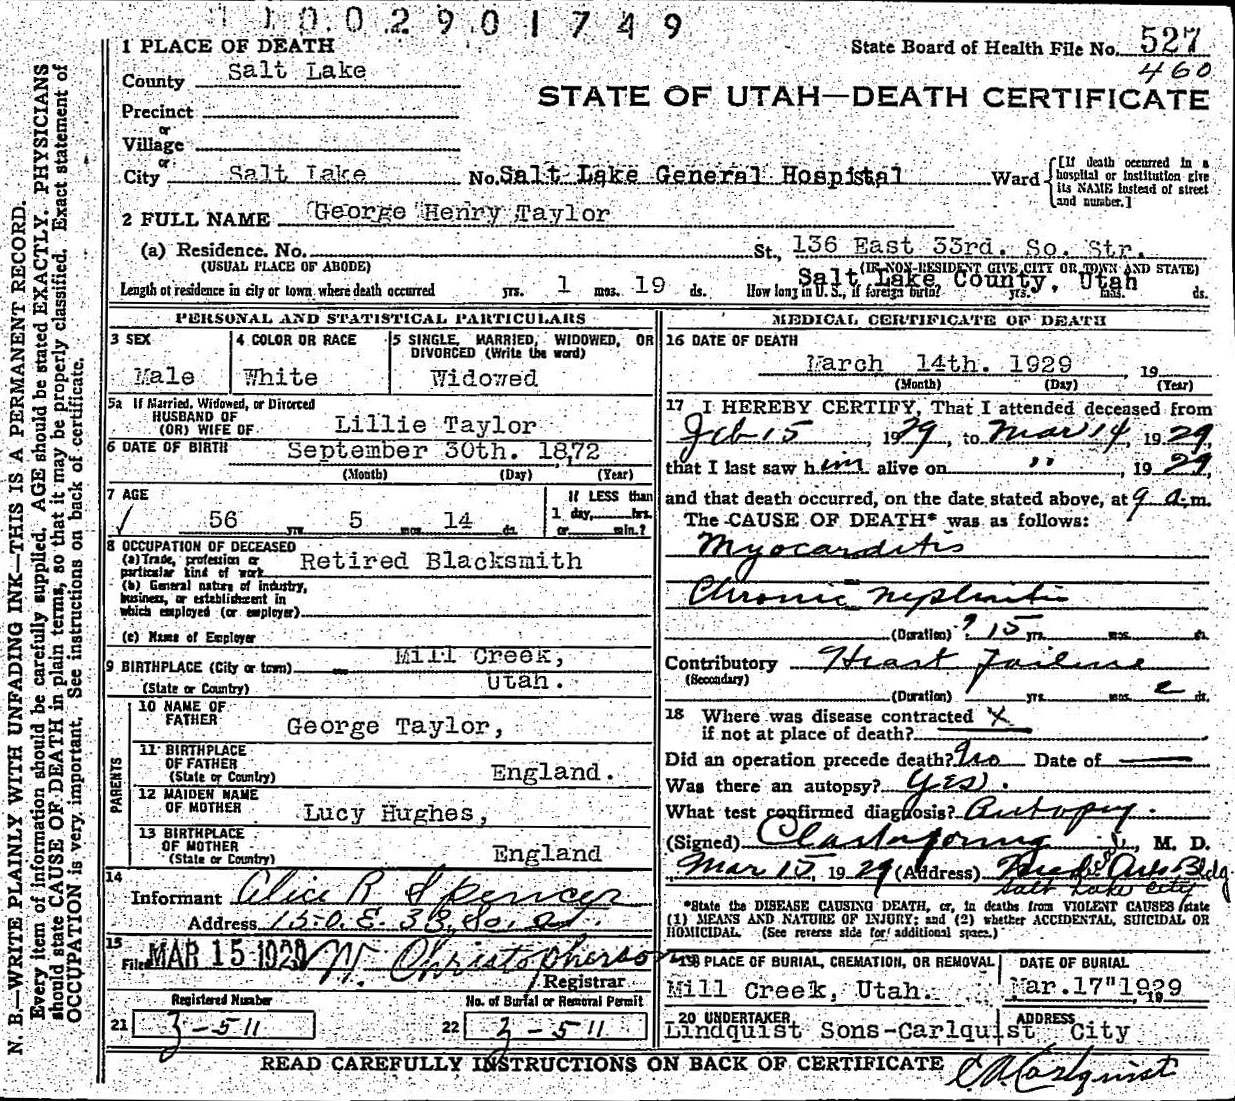 11002901749
1 PLACE OF DEATH
State Board of Health File No. 527
460
County Salt Lake
STATE OF UTAH—DEATH CERTIFICATE
Precinct
or
Village
or
City Salt Lake No. Salt Lake General Hospital Ward [If death occurred in a hospital or institution give its NAME instead of street and number.]
2 FULL NAME George Henry Taylor
(a) Residence. No. St., 136 East 33rd. So. Str.
(USUAL PLACE OF ABODE) (IF NON-RESIDENT GIVE CITY OR TOWN AND STATE)
Salt Lake County, Utah
Length of residence in city or town where death occurred yrs. 1 mos. 19 ds. How long in U. S., if foreign birth? yrs. mos. ds.
PERSONAL AND STATISTICAL PARTICULARS
3 SEX
Male
4 COLOR OR RACE
White
5 SINGLE, MARRIED, WIDOWED, OR DIVORCED (Write the word)
Widowed
5a If Married, Widowed, or Divorced
HUSBAND OF
(OR) WIFE OF Lillie Taylor
6 DATE OF BIRTH September 30th. 1872
(Month) (Day) (Year)
7 AGE
56 yrs. 5 mos. 14 ds.
If LESS than
1 day, hrs.
or min.?
8 OCCUPATION OF DECEASED
(a) Trade, profession or
particular kind of work Retired Blacksmith
(b) General nature of industry,
business, or establishment in
which employed (or employer)
(c) Name of Employer
9 BIRTHPLACE (City or town) Mill Creek,
(State or Country) Utah.
PARENTS
10 NAME OF
FATHER George Taylor,
11 BIRTHPLACE
OF FATHER
(State or Country) England.
12 MAIDEN NAME
OF MOTHER Lucy Hughes,
13 BIRTHPLACE
OF MOTHER
(State or Country) England
14
Informant Alice R Spencer
Address 150 E. 33 So. St.
15
Filed MAR 15 1929 W. Christopherson
Registrar
Registered Number
21 3-511
No. of Burial or Removal Permit
22 3-511
MEDICAL CERTIFICATE OF DEATH
16 DATE OF DEATH
March 14th. 1929, 19
(Month) (Day) (Year)
17 I HEREBY CERTIFY, That I attended deceased from
Feb 15, 1929, to Mar 14, 1929,
that I last saw him alive on ", 1929,
and that death occurred, on the date stated above, at 9 a.m.
The CAUSE OF DEATH* was as follows:
Myocarditis
Chronic Nephritis
(Duration) ? 15 yrs. mos. ds.
Contributory Heart Failure
(Secondary)
(Duration) yrs. mos. 2 ds.
18 Where was disease contracted X
if not at place of death?
Did an operation precede death? No Date of —
Was there an autopsy? Yes.
What test confirmed diagnosis? Autopsy.
(Signed) , M. D.
Mar 15, 1929 (Address) Med. Arts Bldg.
Salt Lake City
*State the DISEASE CAUSING DEATH, or, in deaths from VIOLENT CAUSES state
(1) MEANS AND NATURE OF INJURY; and (2) whether ACCIDENTAL, SUICIDAL OR
HOMICIDAL. (See reverse side for additional space.)
19 PLACE OF BURIAL, CREMATION, OR REMOVAL
Mill Creek, Utah.
DATE OF BURIAL
Mar. 17" 1929
19
20 UNDERTAKER
Lindquist Sons-Carlquist
ADDRESS
City
READ CAREFULLY INSTRUCTIONS ON BACK OF CERTIFICATE
C A Carlquist
N. B.—WRITE PLAINLY WITH UNFADING INK—THIS IS A PERMANENT RECORD.
Every item of information should be carefully supplied. AGE should be stated EXACTLY. PHYSICIANS
should state CAUSE OF DEATH in plain terms, so that it may be properly classified. Exact statement of
OCCUPATION is very important. See instructions on back of certificate.